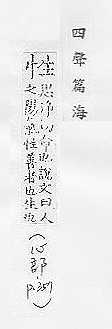 四聲篇海
性 思淨切命也說文曰人
之陽氣性善者也生也
(心部, p.351)